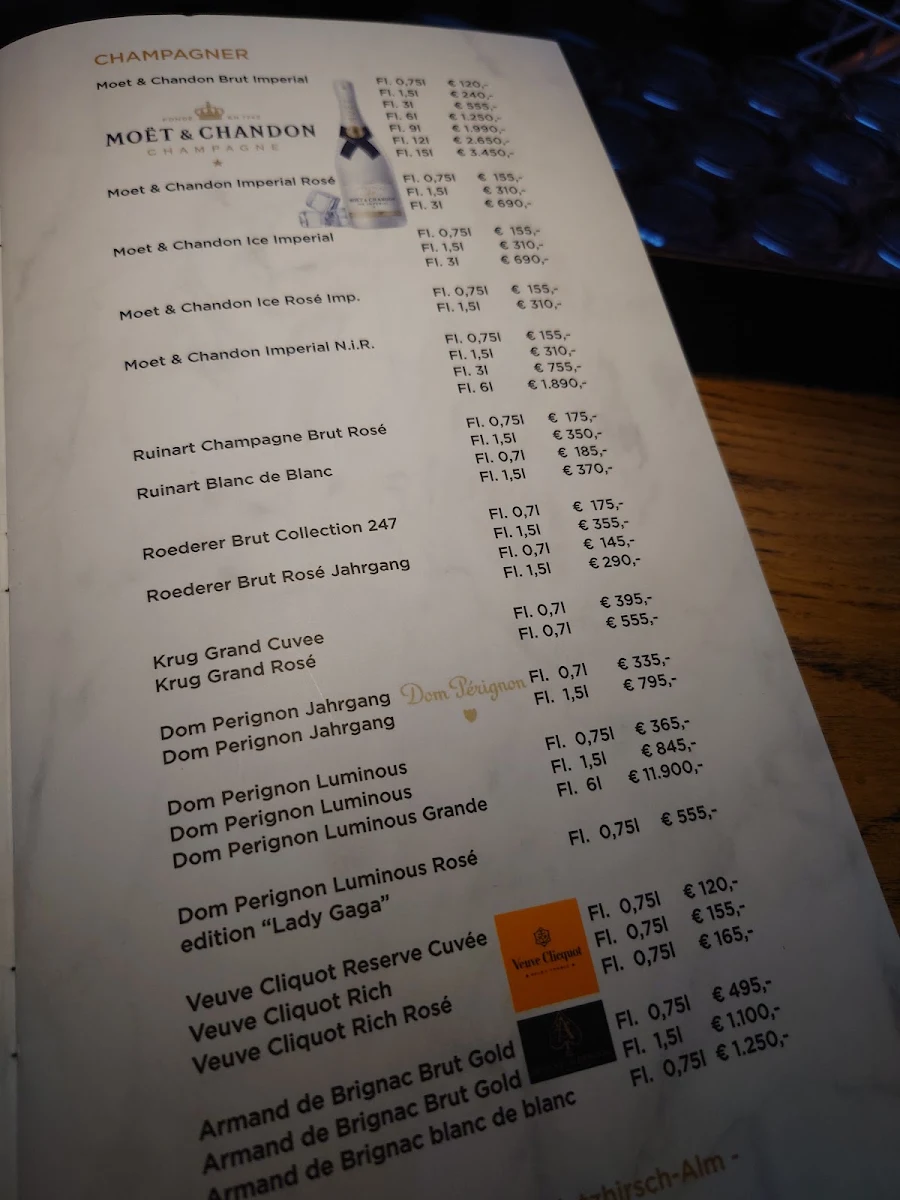 CHAMPAGNER
Moet & Chandon Brut Imperial Fl. 0,75l € 120,-
Fl. 1,5l € 240,-
Fl. 3l € 555,-
Fl. 6l € 1.250,-
Fl. 9l € 1.990,-
Fl. 12l € 2.650,-
Fl. 15l € 3.450,-
MOËT & CHANDON
CHAMPAGNE
Moet & Chandon Imperial Rosé Fl. 0,75l € 155,-
Fl. 1,5l € 310,-
Fl. 3l € 690,-
Moet & Chandon Ice Imperial Fl. 0,75l € 155,-
Fl. 1,5l € 310,-
Fl. 3l € 690,-
Moet & Chandon Ice Rosé Imp. Fl. 0,75l € 155,-
Fl. 1,5l € 310,-
Moet & Chandon Imperial N.i.R. Fl. 0,75l € 155,-
Fl. 1,5l € 310,-
Fl. 3l € 755,-
Fl. 6l € 1.890,-
Ruinart Champagne Brut Rosé Fl. 0,75l € 175,-
Fl. 1,5l € 350,-
Ruinart Blanc de Blanc Fl. 0,7l € 185,-
Fl. 1,5l € 370,-
Roederer Brut Collection 247 Fl. 0,7l € 175,-
Fl. 1,5l € 355,-
Roederer Brut Rosé Jahrgang Fl. 0,7l € 145,-
Fl. 1,5l € 290,-
Krug Grand Cuvee Fl. 0,7l € 395,-
Krug Grand Rosé Fl. 0,7l € 555,-
Dom Perignon Jahrgang Dom Pérignon Fl. 0,7l € 335,-
Dom Perignon Jahrgang Fl. 1,5l € 795,-
Dom Perignon Luminous Fl. 0,75l € 365,-
Dom Perignon Luminous Fl. 1,5l € 845,-
Dom Perignon Luminous Grande Fl. 6l € 11.900,-
Dom Perignon Luminous Rosé Fl. 0,75l € 555,-
edition “Lady Gaga”
Veuve Cliquot Reserve Cuvée Fl. 0,75l € 120,-
Veuve Cliquot Rich Fl. 0,75l € 155,-
Veuve Cliquot Rich Rosé Fl. 0,75l € 165,-
Veuve Clicquot
Armand de Brignac Brut Gold Fl. 0,75l € 495,-
Armand de Brignac Brut Gold Fl. 1,5l € 1.100,-
Armand de Brignac blanc de blanc Fl. 0,75l € 1.250,-
hirsch-Alm -